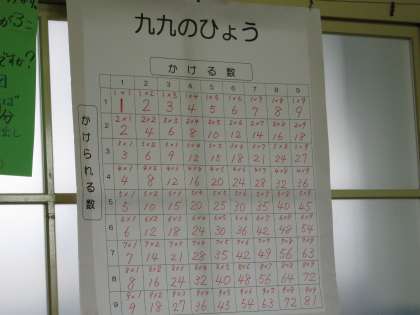 九九のひょう
かける数
かけられる数
1 2 3 4 5 6 7 8 9
1 1×1 1×2 1×3 1×4 1×5 1×6 1×7 1×8 1×9
1 2 3 4 5 6 7 8 9
2 2×1 2×2 2×3 2×4 2×5 2×6 2×7 2×8 2×9
2 4 6 8 10 12 14 16 18
3 3×1 3×2 3×3 3×4 3×5 3×6 3×7 3×8 3×9
3 6 9 12 15 18 21 24 27
4 4×1 4×2 4×3 4×4 4×5 4×6 4×7 4×8 4×9
4 8 12 16 20 24 28 32 36
5 5×1 5×2 5×3 5×4 5×5 5×6 5×7 5×8 5×9
5 10 15 20 25 30 35 40 45
6 6×1 6×2 6×3 6×4 6×5 6×6 6×7 6×8 6×9
6 12 18 24 30 36 42 48 54
7 7×1 7×2 7×3 7×4 7×5 7×6 7×7 7×8 7×9
7 14 21 28 35 42 49 56 63
8 8×1 8×2 8×3 8×4 8×5 8×6 8×7 8×8 8×9
8 16 24 32 40 48 56 64 72
9 9×1 9×2 9×3 9×4 9×5 9×6 9×7 9×8 9×9
9 18 27 36 45 54 63 72 81
が3こ
ですか?
分